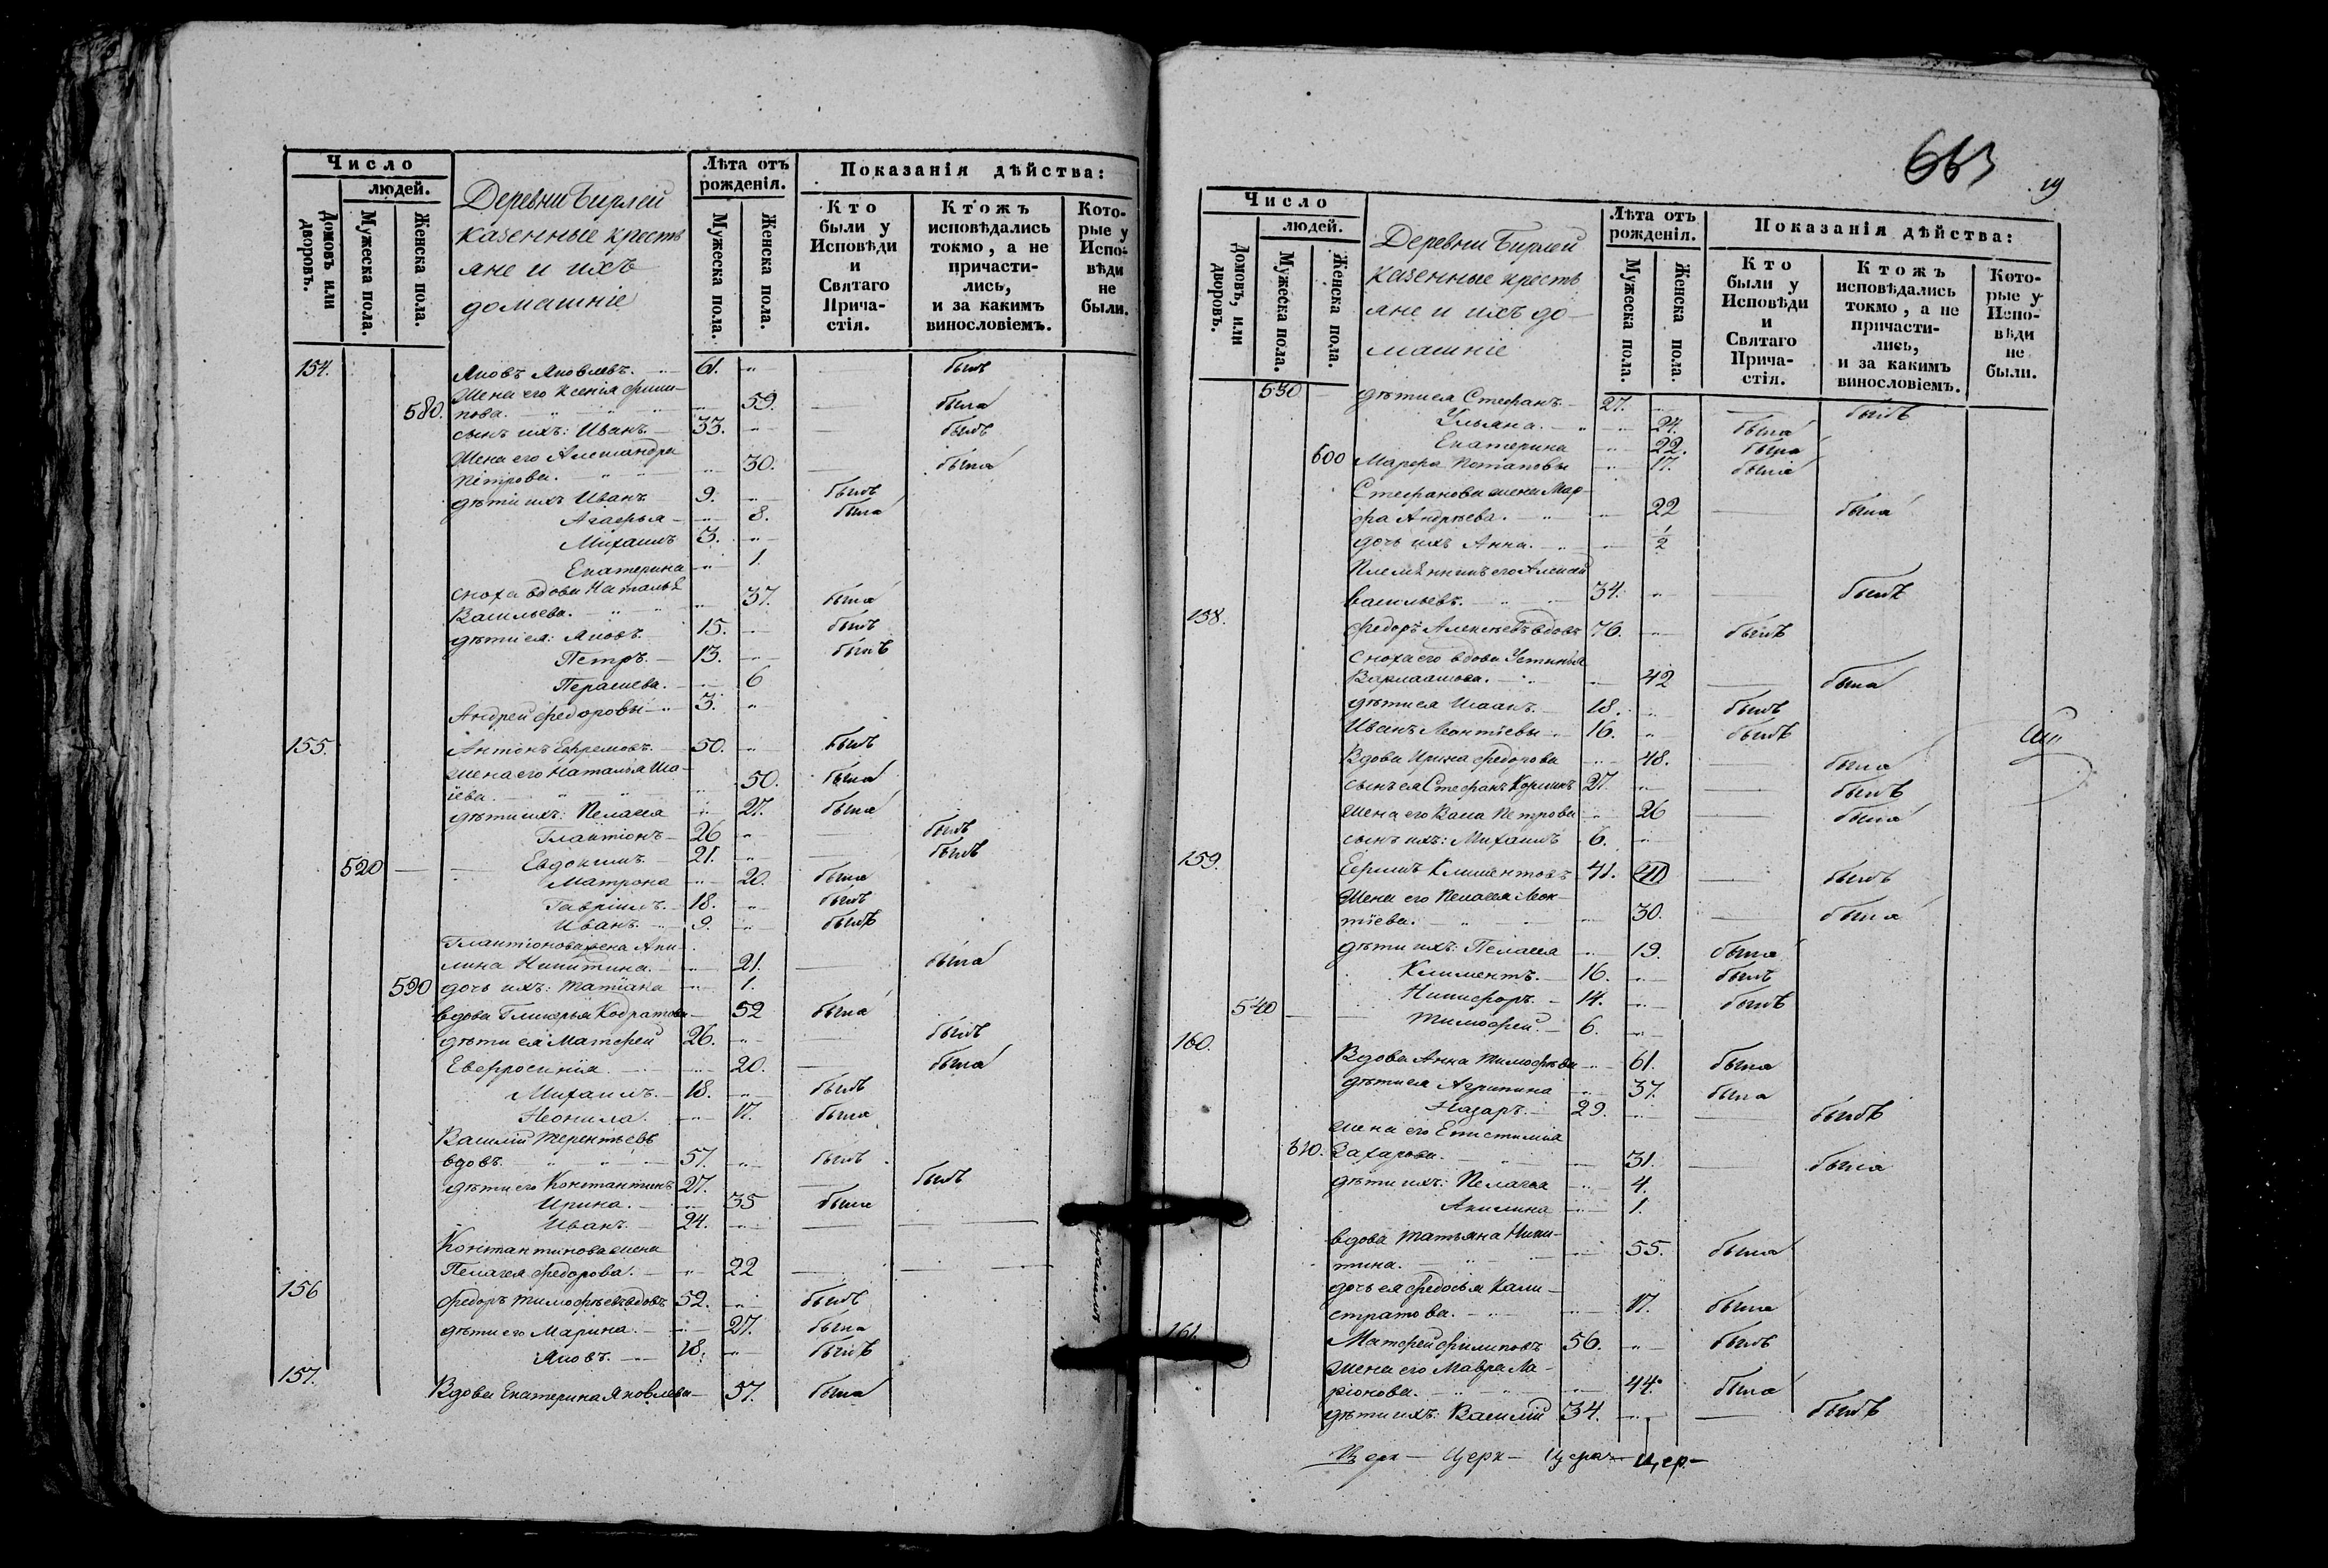 Число
людей.
Домовъ или дворовъ.
Мужеска пола.
Женска пола.
Деревни Бирлей
казенные кресть
яне и ихъ
домашніе
Лѣта отъ
рожденія.
Мужеска пола.
Женска пола.
Показанія дѣйства:
Кто
были у
Исповѣди
и
Святаго
Прича-
стія.
Ктожъ
исповѣдались
токмо, а не
причасти-
лись,
и за какимъ
винословіемъ.
Кото-
рые у
Испо-
вѣди
не
были.
154. Яковъ Яковлевъ. 61. былъ
Жена его Ксенія Фили-
580. пова. 59. была
сынъ ихъ: Иванъ. 33. былъ
Жена его Александра
Петрова. 30. была
дѣти ихъ Иванъ 9. былъ
Агафья 8. была
Михаилъ 3.
Екатерина 1.
сноха вдова Наталья
Васильева. 37. была
дѣти ея: Яковъ 15. былъ
Петръ. 13. былъ
Парасева. 6
Андрей Федоровы 3.
155. Антонъ Ефремовъ. 50. былъ
жена его Наталья
50. была
дѣти ихъ: Пелагея 27. была
Галактіонъ 26 былъ
520 Евдокимъ 21. былъ
Матрона 20. была
Гавріилъ. 18. былъ
Иванъ. 9. былъ
Галактіонова жена Аки-
лина Никитина. 21. была
590 дочь ихъ: Татіана 1.
вдова Гликерья Кодратова 52 была
дѣти ея Матфей 26. былъ
Евфросинія 20. была
Михаилъ. 18. былъ
Неонила. 17. была
Василій Терентьевъ
вдовъ. 57. былъ
дѣти его Константинъ 27. былъ
Ирина. 35 была
Иванъ. 24.
Константинова жена
Пелагея Федорова. 22
156 Федоръ Тимофѣевъ вдовъ 52. былъ
дѣти его Марина. 27. была
Яковъ. 18. былъ
157. Вдова Екатерина Яковлева 57. была
663
19
Число
людей.
Домовъ, или дворовъ.
Мужеска пола.
Женска пола.
Деревни Бирлей
казенные кресть
яне и ихъ до-
машніе
Лѣта отъ
рожденія.
Мужеска пола.
Женска пола.
Показанія дѣйства:
Кто
были у
Исповѣди
и
Святаго
Прича-
стія.
Ктожъ
исповѣдались
токмо, а не
причасти-
лись,
и за какимъ
винословіемъ.
Кото-
рые у
Испо-
вѣди
не
были.
530 дѣти ея Стефанъ 27. былъ
Ульяна. 24. была
Екатерина 22. была
600 Марфа Потаповы 17. была
Стефанова жена Мар-
фа Андреева. 22 была
дочь ихъ Анна. 1/2
Племянникъ его Алексей
Васильевъ. 34. былъ
158. Федоръ Алексѣевъ вдовъ 76. былъ
сноха его вдова Устинья
Варлаамова. 42 была
дѣти ея Исаакъ. 18. былъ
Иванъ Леонтіевы 16. былъ
Вдова Ирина Федорова 48. была
сынъ ея Стефанъ 27. былъ
жена его Васа Петрова 26 была
сынъ ихъ: Михаилъ 6.
159. Ефимъ Климентовъ 41. былъ
Жена его Пелагея Леон-
тіева. 30. была
дѣти ихъ: Пелагея 19. была
Климентъ. 16. былъ
Никифоръ. 14. былъ
540 Тимофей. 6.
160. Вдова Анна Тимофѣева 61. была
дѣти ея Агрипина 37. была
Назаръ. 29. былъ
жена его Епистимия
610. Захарова. 31. была
дѣти ихъ: Пелагея 4.
Акилина 1.
вдова Татьяна Ники-
тина. 55. была
дочь ея Федосья Кали-
стратова. 17. была
161. Матфей Филиповъ 56. былъ
Жена его Мавра Ла-
ріонова. 44. была
дѣти ихъ: Василій 34. былъ
Церк — Церк — Церк — Цер —